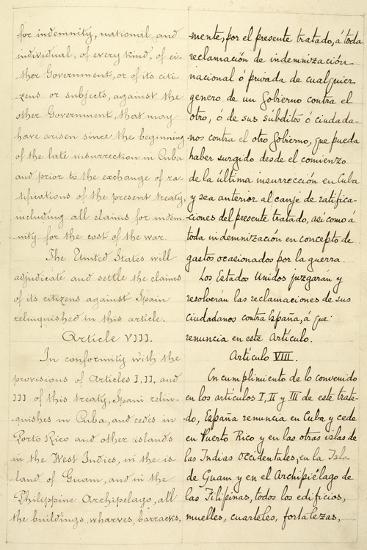 for indemnity, national and
individual, of every kind, of ei-
ther Government, or of its citi-
zens or subjects, against the
other Government, that may
have arisen since the beginning
of the late insurrection in Cuba
and prior to the exchange of ra-
tifications of the present treaty,
including all claims for indem-
nity for the cost of the war.
The United States will
adjudicate and settle the claims
of its citizens against Spain
relinquished in this article.
Article VIII.
In conformity with the
provisions of Articles I, II, and
III of this treaty, Spain relin-
quishes in Cuba, and cedes in
Porto Rico and other islands
in the West Indies, in the is-
land of Guam, and in the
Philippine Archipelago, all
the buildings, wharves, barracks,
mente, por el presente tratado, á toda
reclamación de indemnización
nacional ó privada de cualquier
genero de un Gobierno contra el
otro, ó de sus súbditos ó ciudada-
nos contra el otro Gobierno, que pueda
haber surgido desde el comienzo
de la última insurrección en Cuba
y sea anterior al canje de ratifica-
ciones del presente tratado, así como á
toda indemnización en concepto de
gastos ocasionados por la guerra.
Los Estados Unidos juzgarán y
resolverán las reclamaciones de sus
ciudadanos contra España, á que
renuncia en este Artículo.
Artículo VIII.
En cumplimiento de lo convenido
en los artículos I, II y III de este trata-
do, España renuncia en Cuba y cede
en Puerto Rico y en las otras islas de
las Indias Occidentales, en la Isla
de Guam y en el Archipiélago de
las Filipinas, todos los edificios,
muelles, cuarteles, fortalezas,